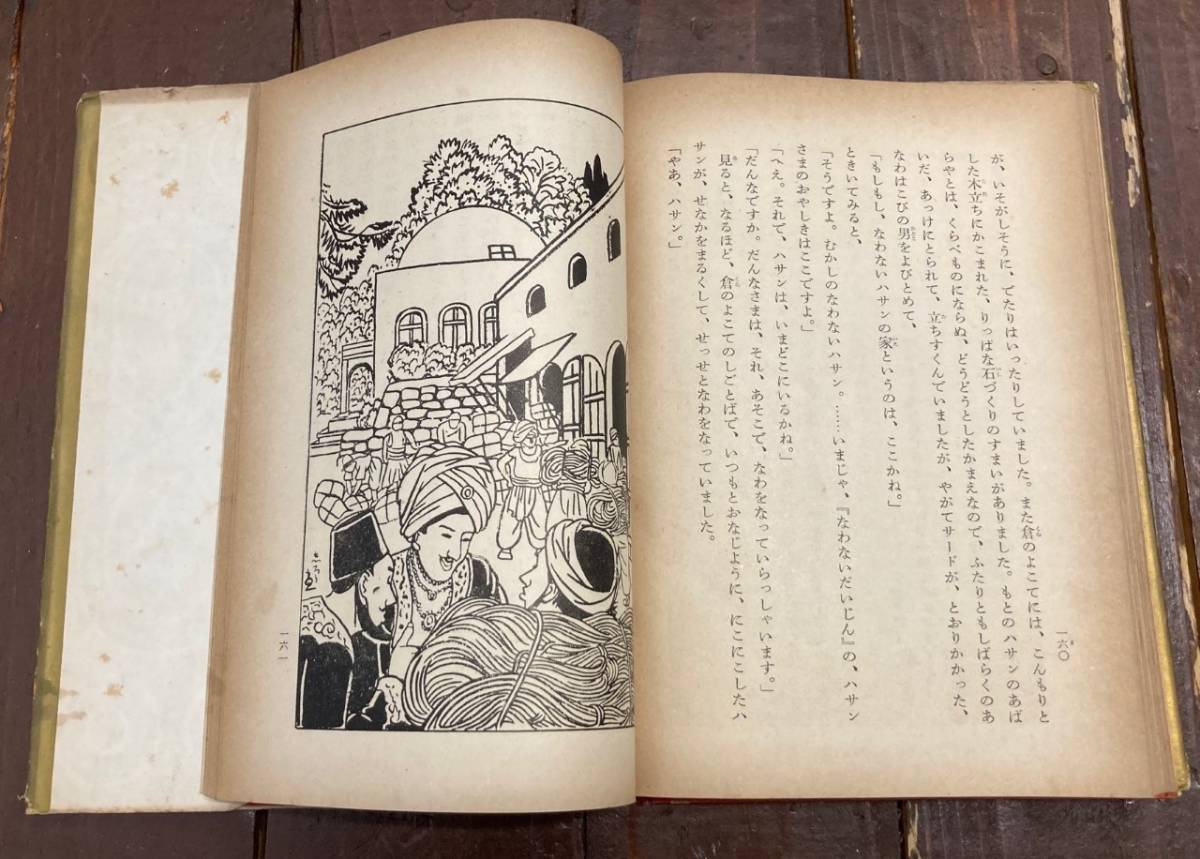 一六〇
が、いそがしそうに、でたりはいったりしていました。また倉のよこてには、こんもりと
した木立ちにかこまれた、りっぱな石づくりのすまいがありました。もとのハサンのあば
らやとは、くらべものにならぬ、どうどうとしたかまえなので、ふたりともしばらくのあ
いだ、あっけにとられて、立ちすくんでいましたが、やがてサードが、とおりかかった、
なわはこびの男をよびとめて、
「もしもし、なわないハサンの家というのは、ここかね。」
ときいてみると、
「そうですよ。むかしのなわないハサン。……いまじゃ、『なわないだいじん』の、ハサン
さまのおやしきはここですよ。」
「へえ。それで、ハサンは、いまどこにいるかね。」
「だんなですか。だんなさまは、それ、あそこで、なわをなっていらっしゃいます。」
見ると、なるほど、倉のよこてのしごとばで、いつもとおなじように、にこにこしたハ
サンが、せなかをまるくして、せっせとなわをなっていました。
「やあ、ハサン。」
一六一